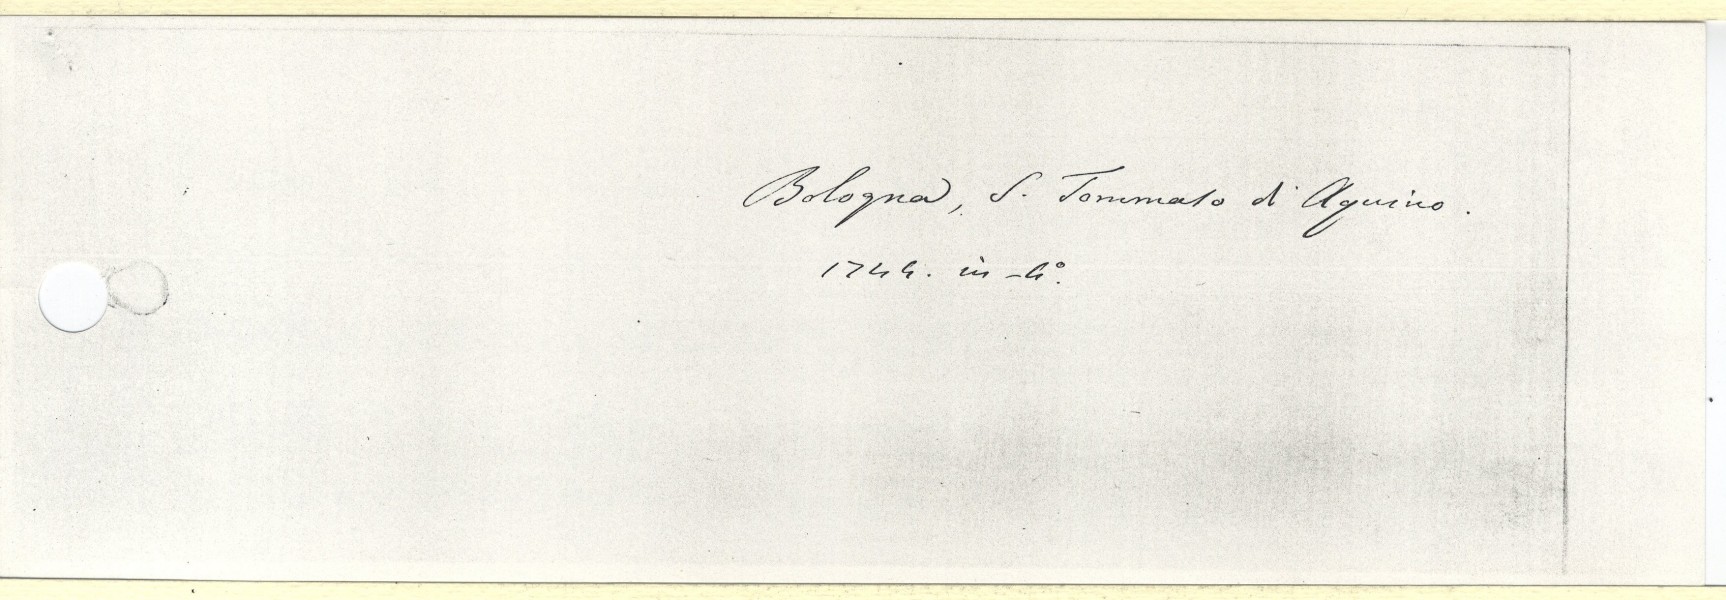 Bologna, S. Tommaso di Aquino.
1744. in-4º.